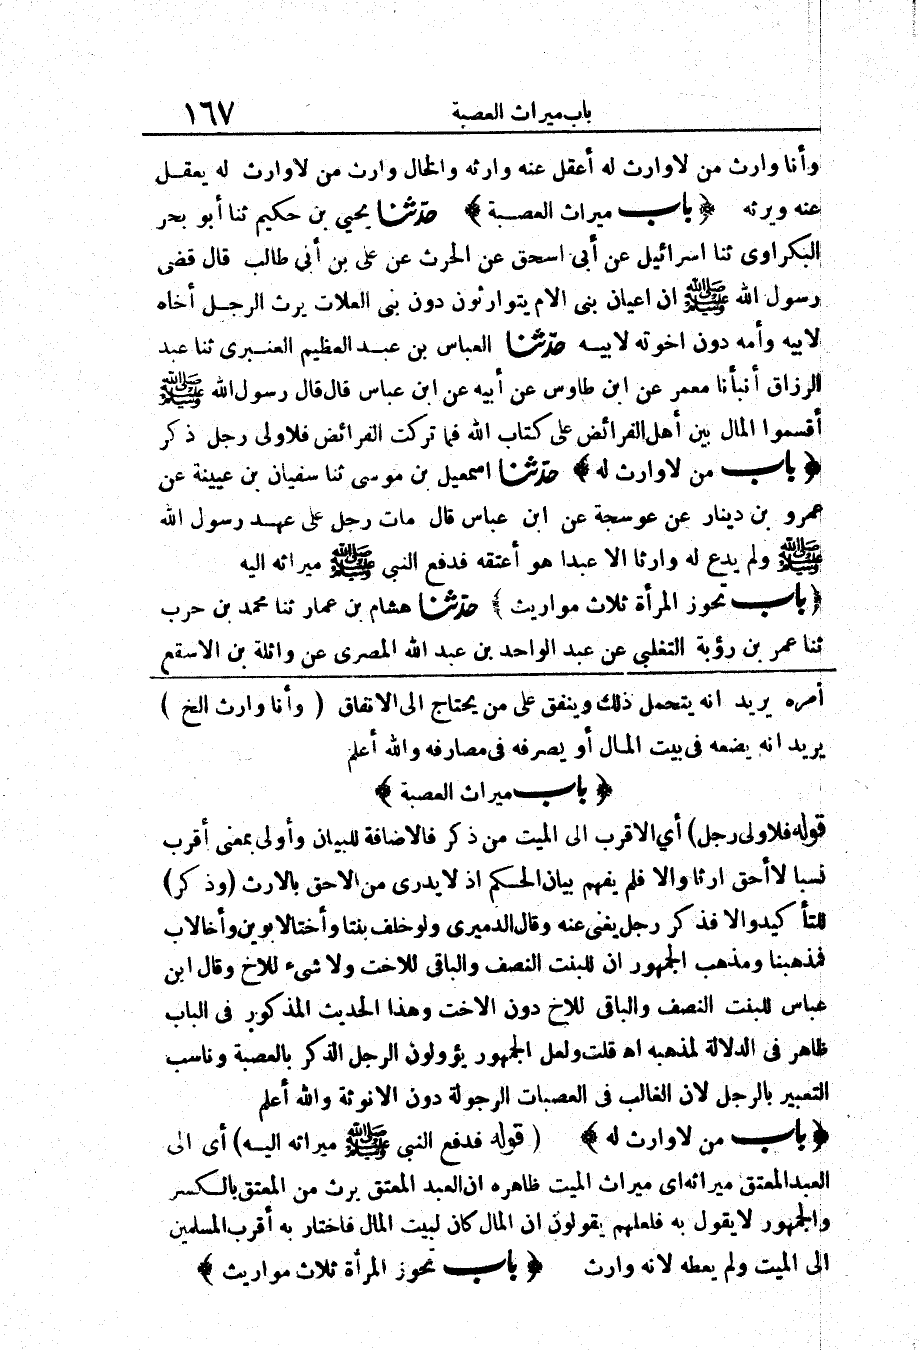 باب ميراث العصبة ١٦٧
وأنا وارث من لاوارث له أعقل عنه وارثه والخال وارث من لاوارث له يعقل
عنه ويرثه ﴿ باب ميراث العصبة ﴾ حدّثنا يحيي بن حكيم ثنا أبو بحر
البكراوى ثنا اسرائيل عن أبى اسحق عن الحرث عن على بن أبي طالب قال قضى
رسول الله ﷺ ان اعيان بنى الام يتوارثون دون بنى العلات يرث الرجل أخاه
لابيه وأمه دون اخوته لابيه حدّثنا العباس بن عبد العظيم العنبرى ثنا عبد
الرزاق أنبأنا معمر عن ابن طاوس عن أبيه عن ابن عباس قال قال رسول الله ﷺ
أقسموا المال بين أهل الفرائض على كتاب الله فما تركت الفرائض فلاولى رجل ذكر
﴿ باب من لاوارث له ﴾ حدّثنا اسمعيل بن موسى ثنا سفيان بن عيينة عن
عمرو بن دينار عن عوسجة عن ابن عباس قال مات رجل على عهد رسول الله
ﷺ ولم يدع له وارثا الا عبدا هو أعتقه فدفع النبي ﷺ ميراثه اليه
﴿ باب تحوز المرأة ثلاث مواريث ﴾ حدّثنا هشام بن عمار ثنا محمد بن حرب
ثنا عمر بن رؤبة التغلبي عن عبد الواحد بن عبد الله المصرى عن واثلة بن الاسقع
أمره يريد انه يتحمل ذلك وينفق على من يحتاج الى الانفاق ( وأنا وارث الخ )
يريد انه يضعه فى بيت المال أو يصرفه فى مصارفه والله أعلم
﴿ باب ميراث العصبة ﴾
قوله فلاولى رجل) أي الاقرب الى الميت من ذكر فالاضافة للبيان وأولى بمعنى أقرب
نسبا لاأحق ارثا والا فلم يفهم بيان الحكم اذ لايدرى من الاحق بالارث (وذكر)
للتأكيد والا فذكر رجل يغنى عنه وقال الدميرى ولوخلف بنتا وأختا لابوين وأخا لاب
فمذهبنا ومذهب الجمهور ان للبنت النصف والباقى للاخت ولا شيء للاخ وقال ابن
عباس للبنت النصف والباقى للاخ دون الاخت وهذا الحديث المذكور فى الباب
ظاهر فى الدلالة لمذهبه اه قلت ولعل الجمهور يؤولون الرجل الذكر بالعصبة وناسب
التعبير بالرجل لان الغالب فى العصبات الرجولة دون الانوثة والله أعلم
﴿ باب من لاوارث له ﴾ ( قوله فدفع النبي ﷺ ميراثه اليه) أى الى
العبدالمعتق ميراثه اى ميراث الميت ظاهره ان العبد المعتق يرث من المعتق بالكسر
والجمهور لايقول به فلعلهم يقولون ان المال كان لبيت المال فاختار به أقرب المسلمين
الى الميت ولم يعطه لانه وارث ﴿ باب تحوز المرأة ثلاث مواريث ﴾